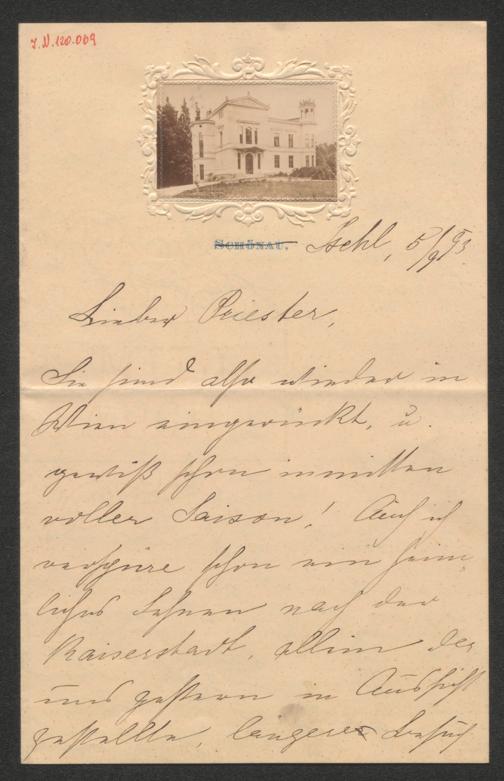 I.N. 120.009
SCHÖNAU. Ischl, 5/9 93.
Lieber Priester,
Sie sind also wieder in
Wien eingerückt, u.
gewiß schon inmitten
voller Saison! Auch ich
verspüre schon ein heim-
liches Sehnen nach der
Kaiserstadt, allein der
uns gestern in Aussicht
gestellte, längere Besuch